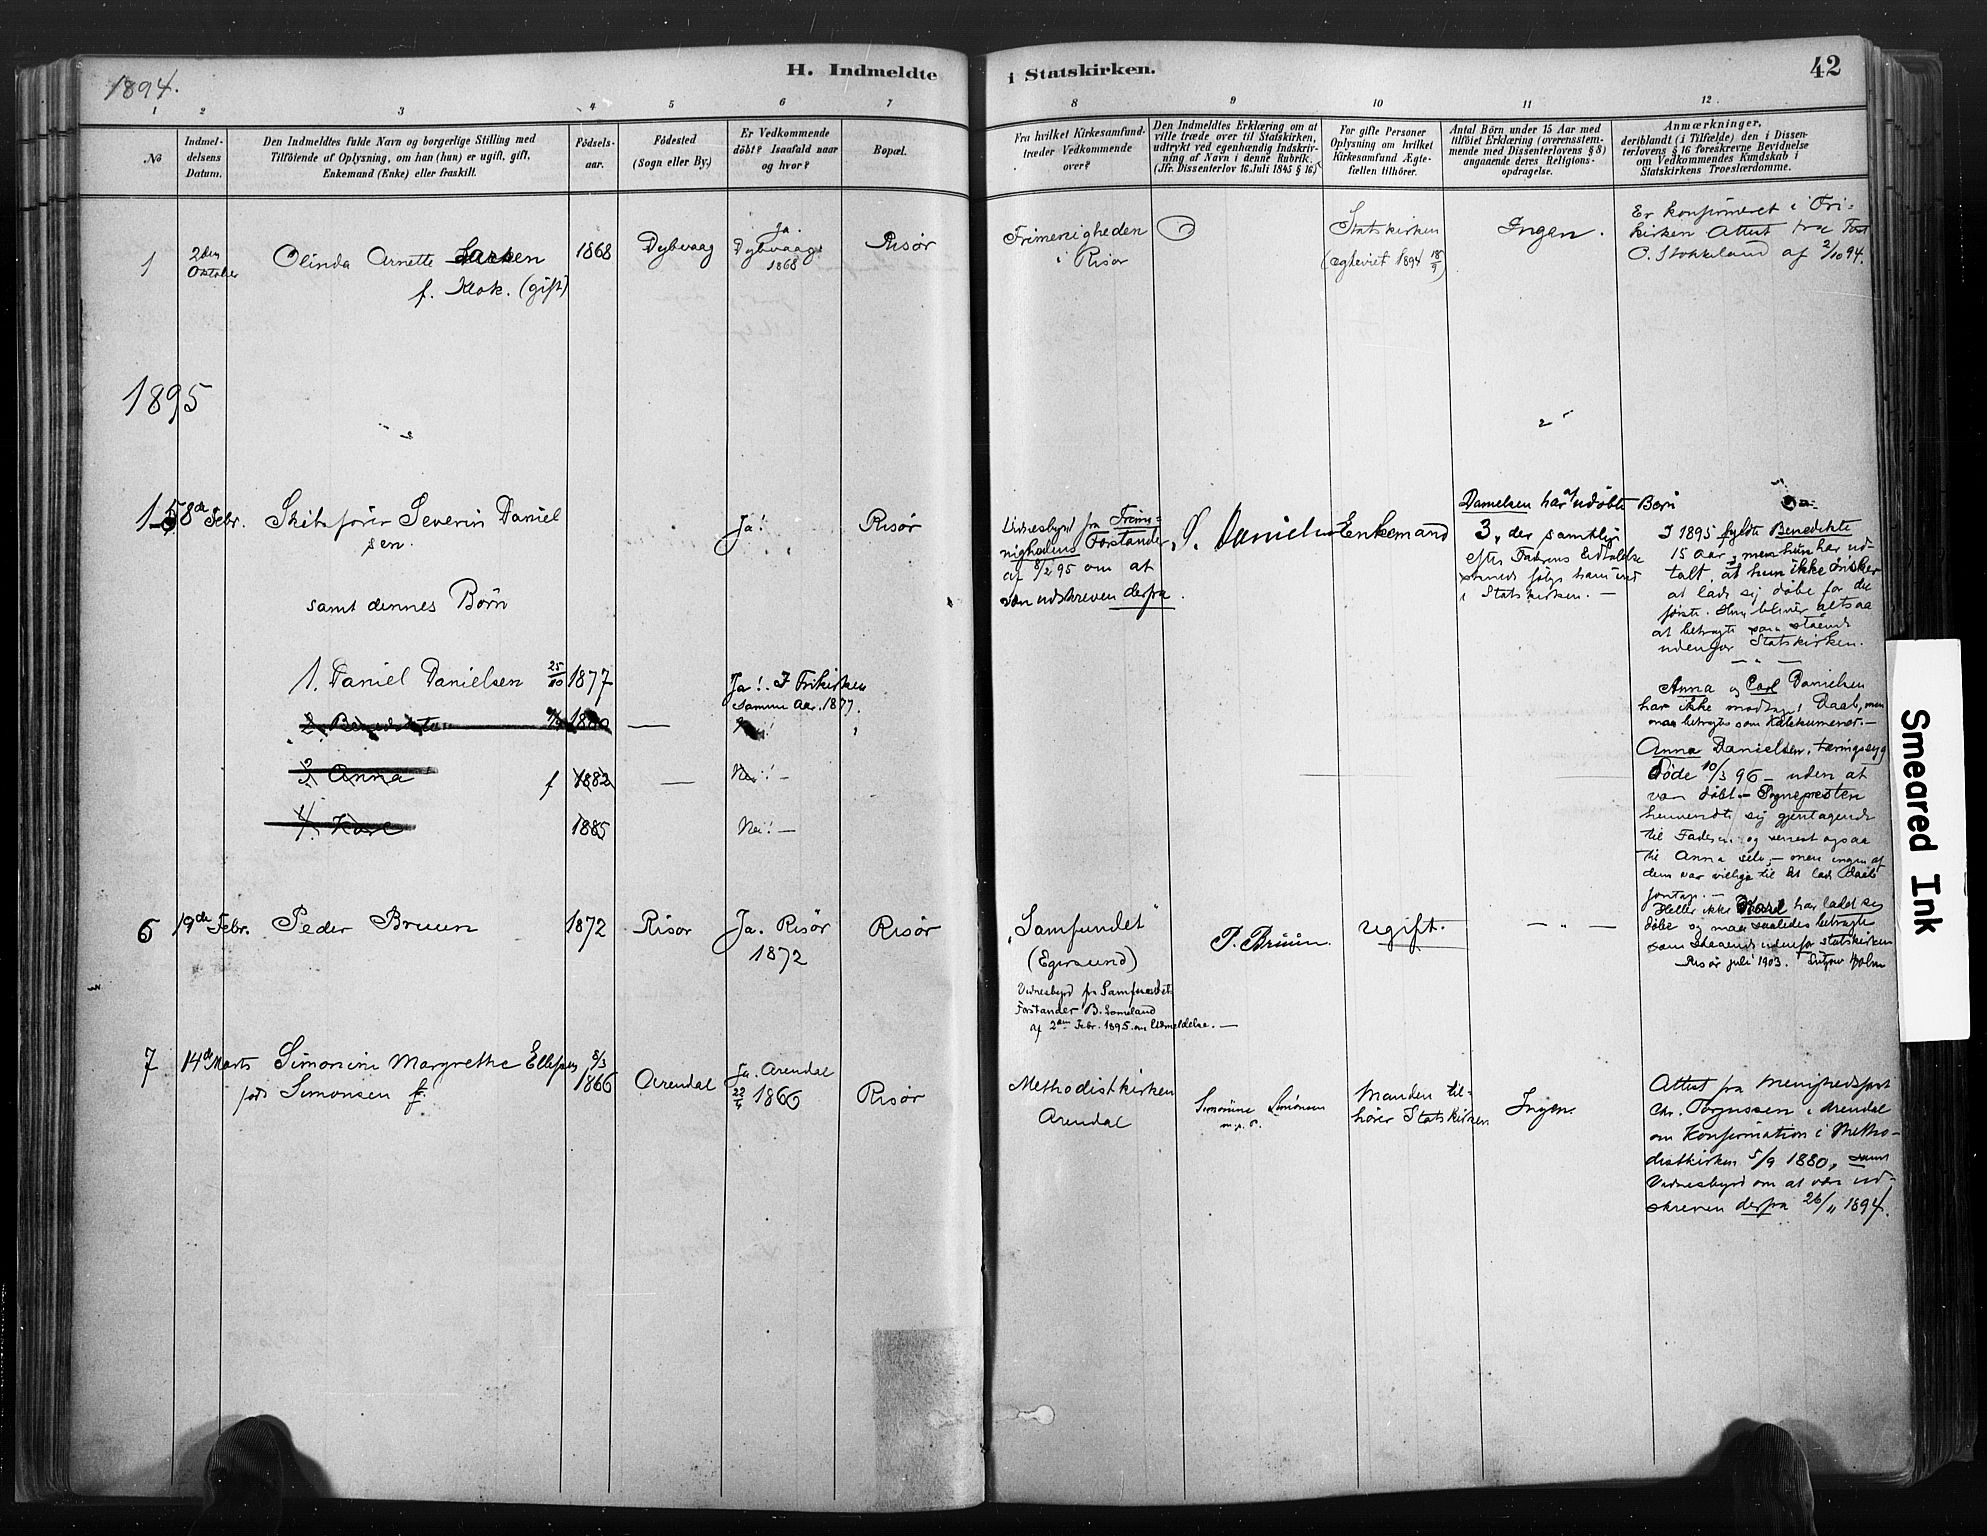 1894.
H. Indmeldte i Statskirken.
42
1 2 3 4 5 6 7 8 9 10 11 12
No
Indmel-
delsens
Datum.
Den Indmeldtes fulde Navn og borgerlige Stilling med
Tilføiende af Oplysning, om han (hun) er ugift, gift,
Enkemand (Enke) eller fraskilt.
Fødsels-
aar.
Fødested
(Sogn eller By.)
Er Vedkommende
døbt? Isaafald naar
og hvor?
Bopæl.
Fra hvilket Kirkesamfund
træder Vedkommende
over?
Den Indmeldtes Erklæring om at
ville træde over til Statskirken,
udtrykt ved egenhændig Indskriv-
ning af Navn i denne Rubrik.
(Jfr. Dissenterlov 16. Juli 1845 § 16.)
For gifte Personer
Oplysning om hvilket
Kirkesamfund Ægte-
fællen tilhører.
Antal Børn under 15 Aar med
tilføiet Erklæring (overensstem-
mende med Dissenterlovens § 8)
angaaende deres Religions-
opdragelse.
Anmærkninger,
deriblandt (i Tilfælde) den i Dissen-
terlovens § 16 foreskrevne Bevidnelse
om Vedkommendes Kundskab i
Statskirkens Troeslærdomme.
1
2den
Oktober
Olinda Arnette
f. Klok. (gift)
1868
Dybvaag
Ja.
Dybvaag
1868
Risør
Frimenigheden
i Risør
Statskirken
(egteviet 1894 18/9)
Ingen.
Er konfirmeret i Fri-
kirken Attest fra
O. Stokkeland af 2/10 94.
1895
1-5
8de Febr.
Skibsfører Severin Daniel
sen.
Ja!
Risør
Vidnesbyrd fra Frime-
nighedens Forstander
af 8/2 95 om at
være udskreven derfra.
S. Danielsen
Enkemand
Danielsen har af udøbte Børn
3, der samtlige
efter Faderens Udtalelse
følge ham ind
i Statskirken. —
I 1895 fyldte Benedikte
15 aar, men hun har ud-
talt, at hun ikke ønsker
at lade sig døbe for det
første. Hun bliver altsaa
at betragte som staaende
udenfor Statskirken.
samt dennes Børn
1. Daniel Danielsen 25/10 1877
Ja! I Frikirken
samme Aar. 1877.
2. Benedikte 1880 —
Nei!
3. Anna f 1882 —
Nei! —
4. Karl
1885
Nei! —
Anna og Carl Danielsen
har ikke modtaget Daab, men
maa betragtes som Katekumener. —
Anna Danielsen, tæringssyg
Døde 10/3 96 — uden at
være døbt — Sognepresten
henvendte sig gjentagende
til Faderen og senest ogsaa
til Anna selv, — men ingen af
dem var villige til at lade Daab
foretage. —
Heller ikke Karl har ladet sig
døbe og maa saaledes betragtes
som staaende udenfor statskirken
Risør juli 1903. Holm
6
19de Febr.
Peder Bruun
1872
Risør
Ja. Risør
1872
Risør
"Samfundet"
(Egersund)
Vidnesbyrd fra Samfundets
Forstander B.
af 2den Febr. 1895 om Udmeldelse. —
P. Bruun.
ugift.
— " —
7
14de Marts
Simonine Margrethe Ellefsen
født Simonsen f.
8/3
1866
Arendal
Ja. Arendal
22/4 1866
Risør
Methodistkirken
Arendal
Simonine Simonsen
m. p. P.
Manden til-
hører Statskirken
Ingen.
Attest fra Menighedsforst
Chr. Torjussen i Arendal
om Konfirmation i Metho-
distkirken 5/9 1880, samt
Vidnesbyrd om at være ud-
skreven derfra 26/11 1894.
Smeared Ink